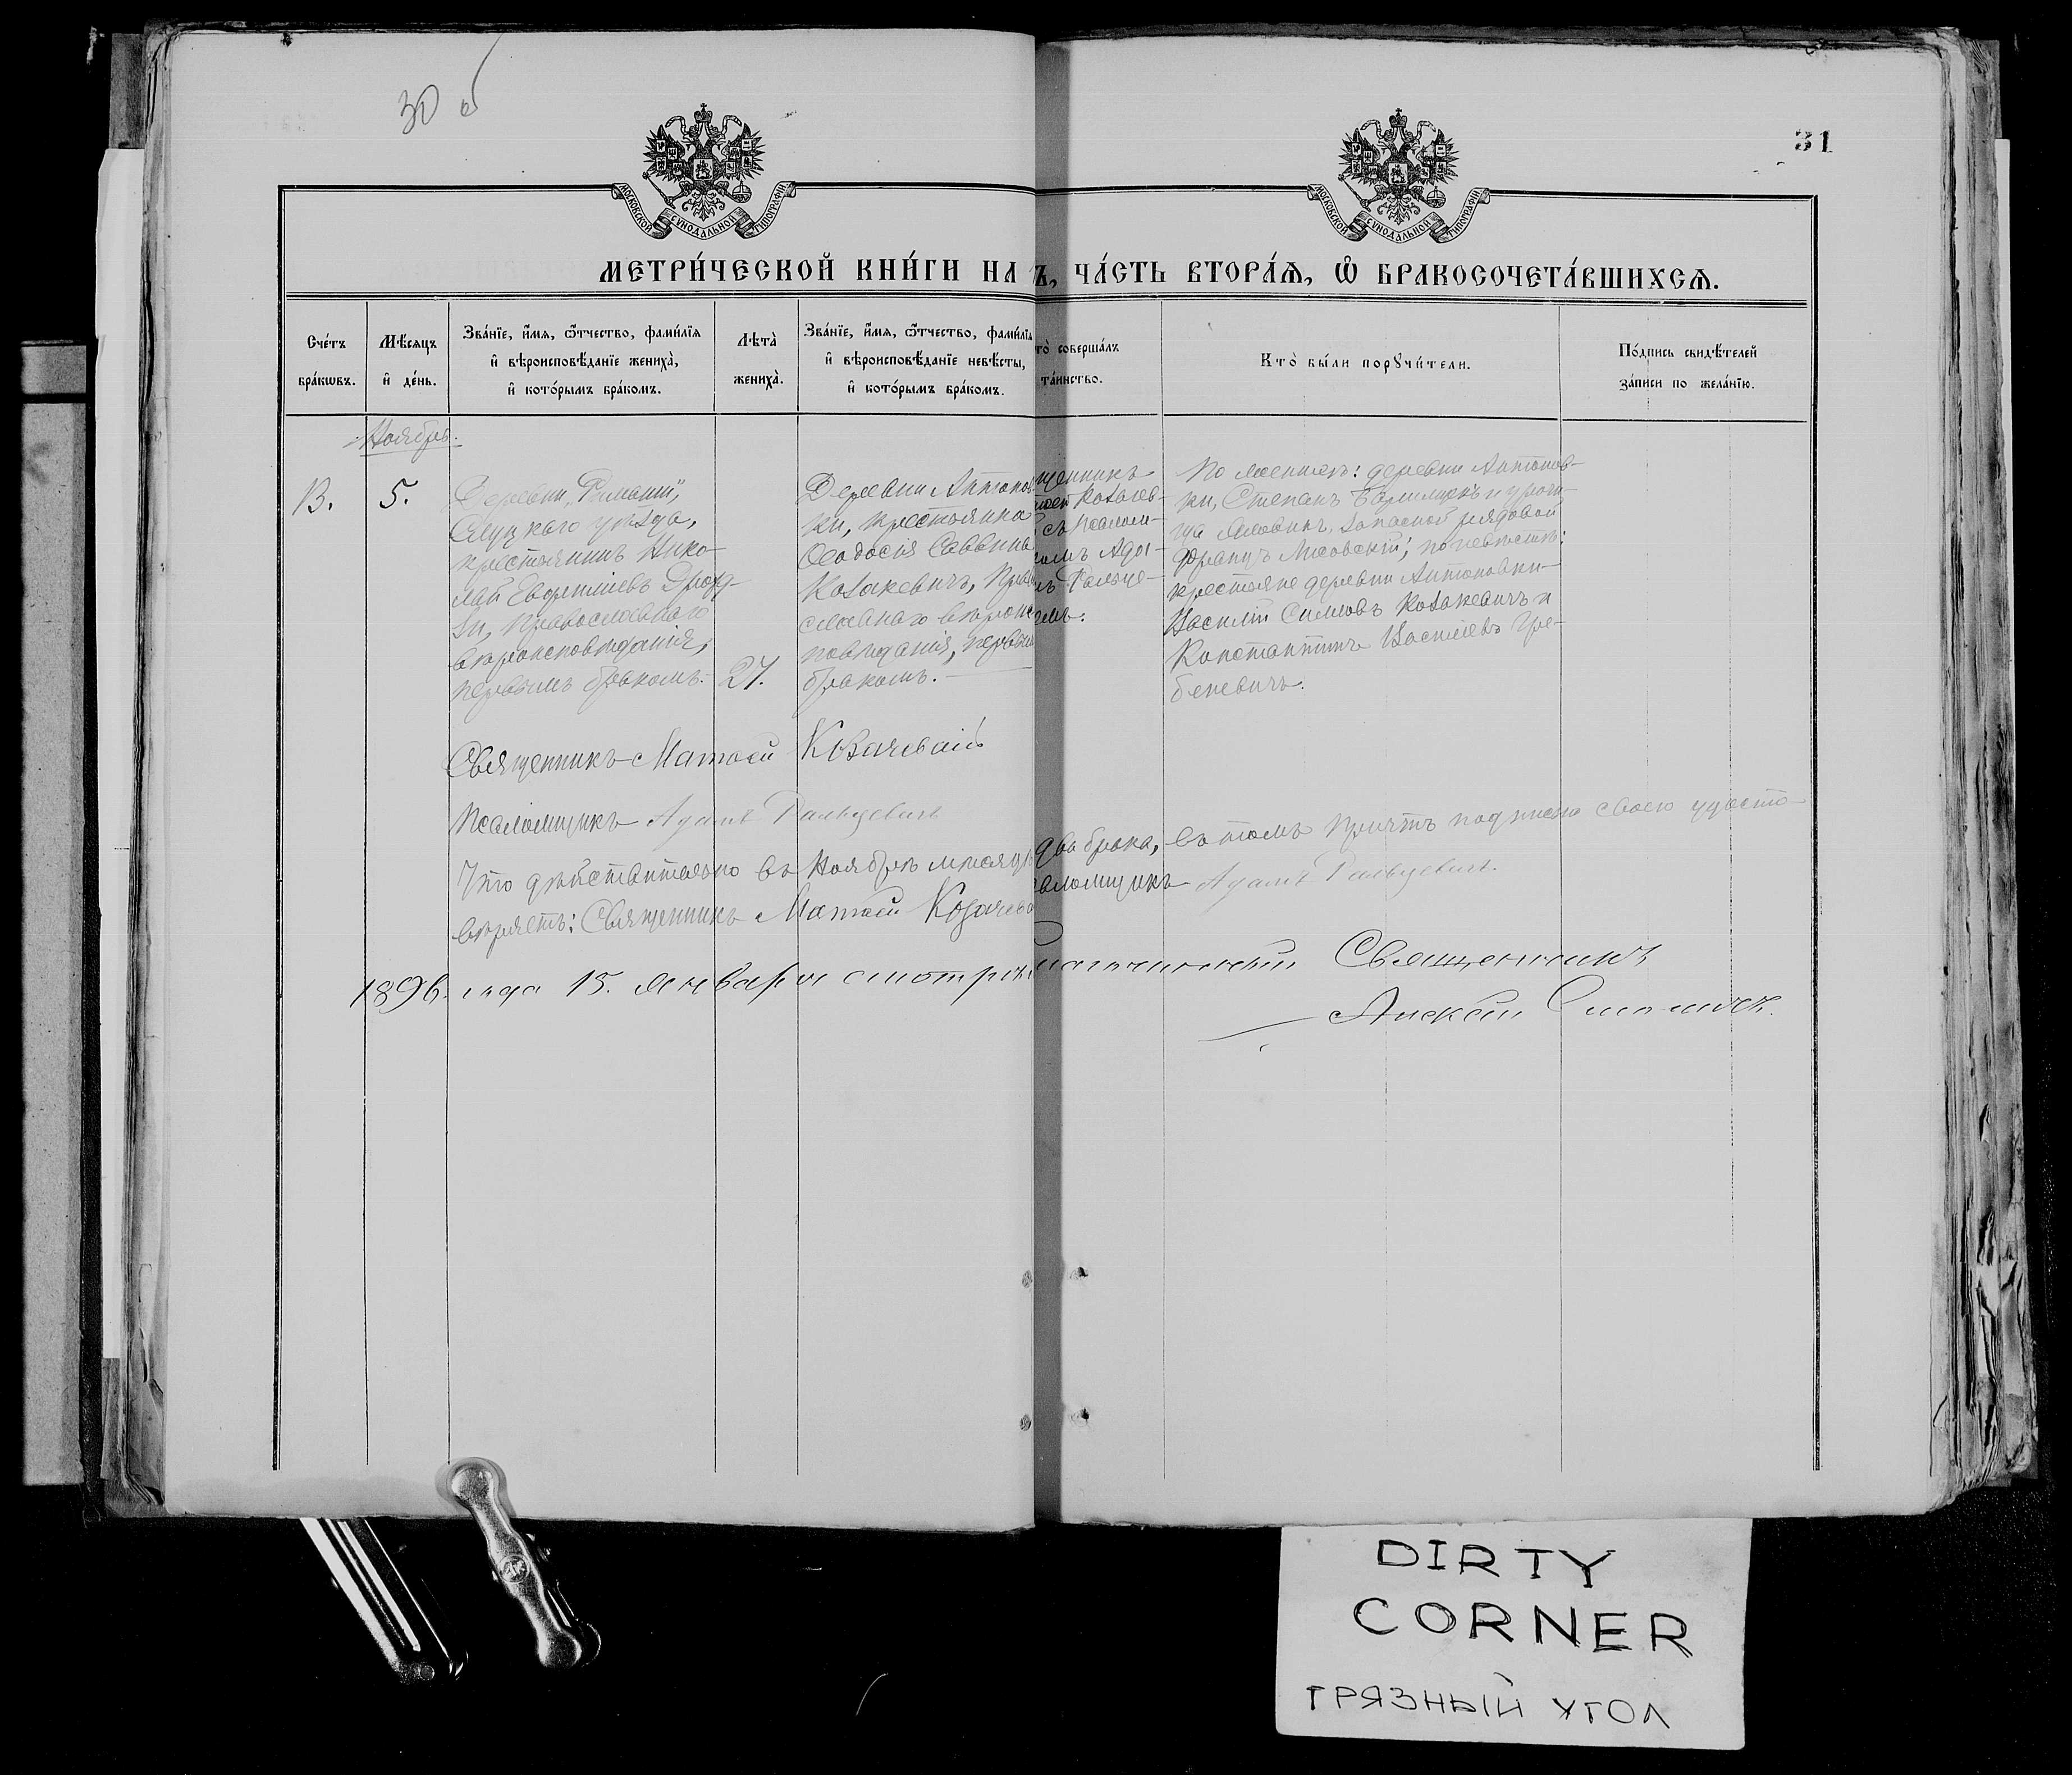 30 об
31
МОСКОВСКОЙ СѴНОДАЛЬНОЙ ТИПОГРАФІИ
МОСКОВСКОЙ СѴНОДАЛЬНОЙ ТИПОГРАФІИ
МЕТРИ́ЧЕСКОЙ КНИ́ГИ НА
Ъ, ЧА́СТЬ ВТОРА́Ѧ, Ѽ БРАКОСОЧЕТА́ВШИХСѦ.
Сче́тъ
бра́кѡвъ.
Мѣ́сяцъ
и҆ де́нь.
Зва́нїе, и҆́мѧ, ѻ҆́тчество, фами́лїѧ
и҆ вѣроисповѣ́данїе жениха̀,
и҆ кото́рымъ бра́комъ.
Лѣта̀
жениха̀.
Зва́нїе, и҆́мѧ, ѻ҆́тчество, фами́лїѧ
и҆ вѣроисповѣ́данїе невѣ́сты,
и҆ кото́рымъ бра́комъ.
то̀ соверша́лъ
та́инство.
Кто̀ бы́ли порꙋчи́тели.
По́дпись свидѣ́телей
за́писи по жела́нїю.
Ноябрь.
В.
5.
Деревни „Римаши",
Слуцкаго уѣзда,
крестьянинъ Нико-
лай Евфиміевъ Дрозд-
, православнаго
вѣроисповѣданія,
первымъ бракомъ.
27.
Деревни Антонов
ки, крестьянка
Ѳеодосія Саввина
Козакевичъ, Прав
славнаго вѣроис
повѣданія, первым
бракомъ.
щенникъ
Козачев-
съ Псалом-
Ада-
Ральце-
емъ.
По женихѣ: деревни Антонов-
ки, Степанъ и урочи-
ща запасной рядовой
Францъ ; по невѣстѣ:
крестьяне деревни Антоновки
Василій Симовъ Козакевичъ и
Константинъ Васильевъ Гре-
беневичъ.
Священникъ Матѳей Козачевскій
Псаломщикъ Адамъ Ральцевичъ
Что дѣйствительно въ Ноябрѣ мѣсяцѣ
два брака, въ томъ Причтъ подписью своею удосто-
вѣряетъ: Священникъ Матѳей Козачевс
аломщикъ Адамъ Ральцевичъ.
1896. года 15. января смотрѣл
Священникъ
Алексѣй Смоличъ.
DIRTY
CORNER
ГРЯЗНЫЙ УГОЛ